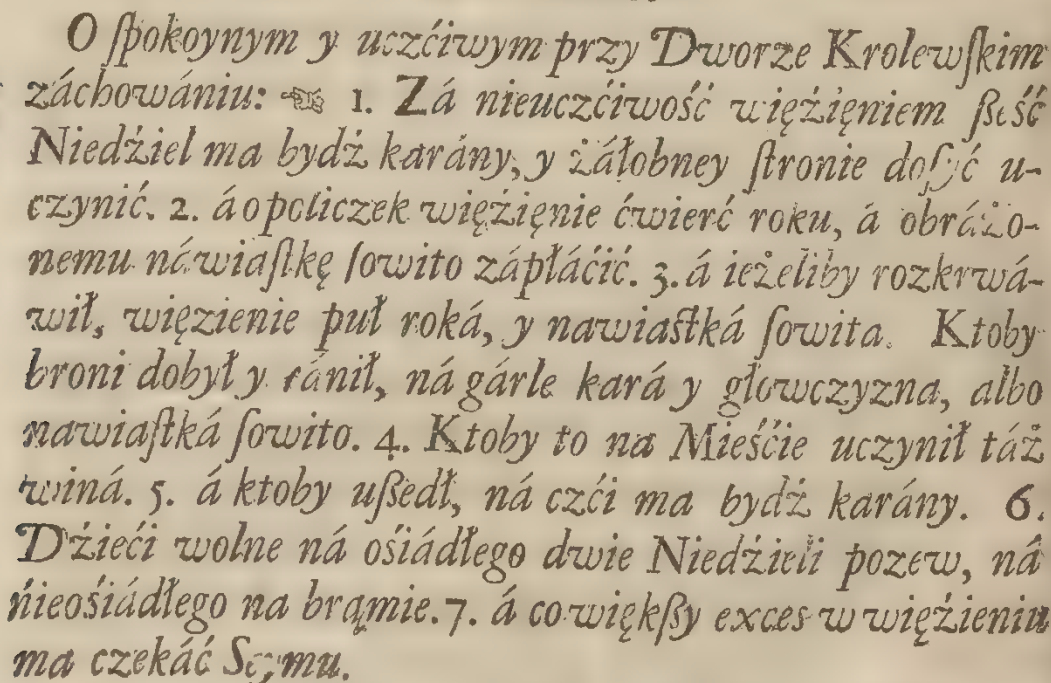 O ſpokoynym y uczćiwym przy Dworze Krolewſkim
záchowániu: ☞ 1. Zá nieuczćiwość więźięniem ſześć
Niedźiel ma bydź karány, y żáłobney ſtronie doſyć u-
czynić. 2. á o policzek więźięnie ćwierć roku, á obráżo-
nemu náwiaſtkę ſowito zápłáćić. 3. á ieżeliby rozkrwá-
wił, więzienie puł roká, y nawiaſtká ſowita. Ktoby
broni dobył y ránił, ná gárle kará y głowczyzna, albo
nawiaſtká ſowito. 4. Ktoby to na Mieśćie uczynił táż
winá. 5. á ktoby uſzedł, ná czći ma bydź karány. 6.
Dźieći wolne ná ośiádłego dwie Niedźieli pozew, ná
nieośiádłego na brąmie. 7. á co więkſzy exces w więźieniu
ma czekáć Seymu.